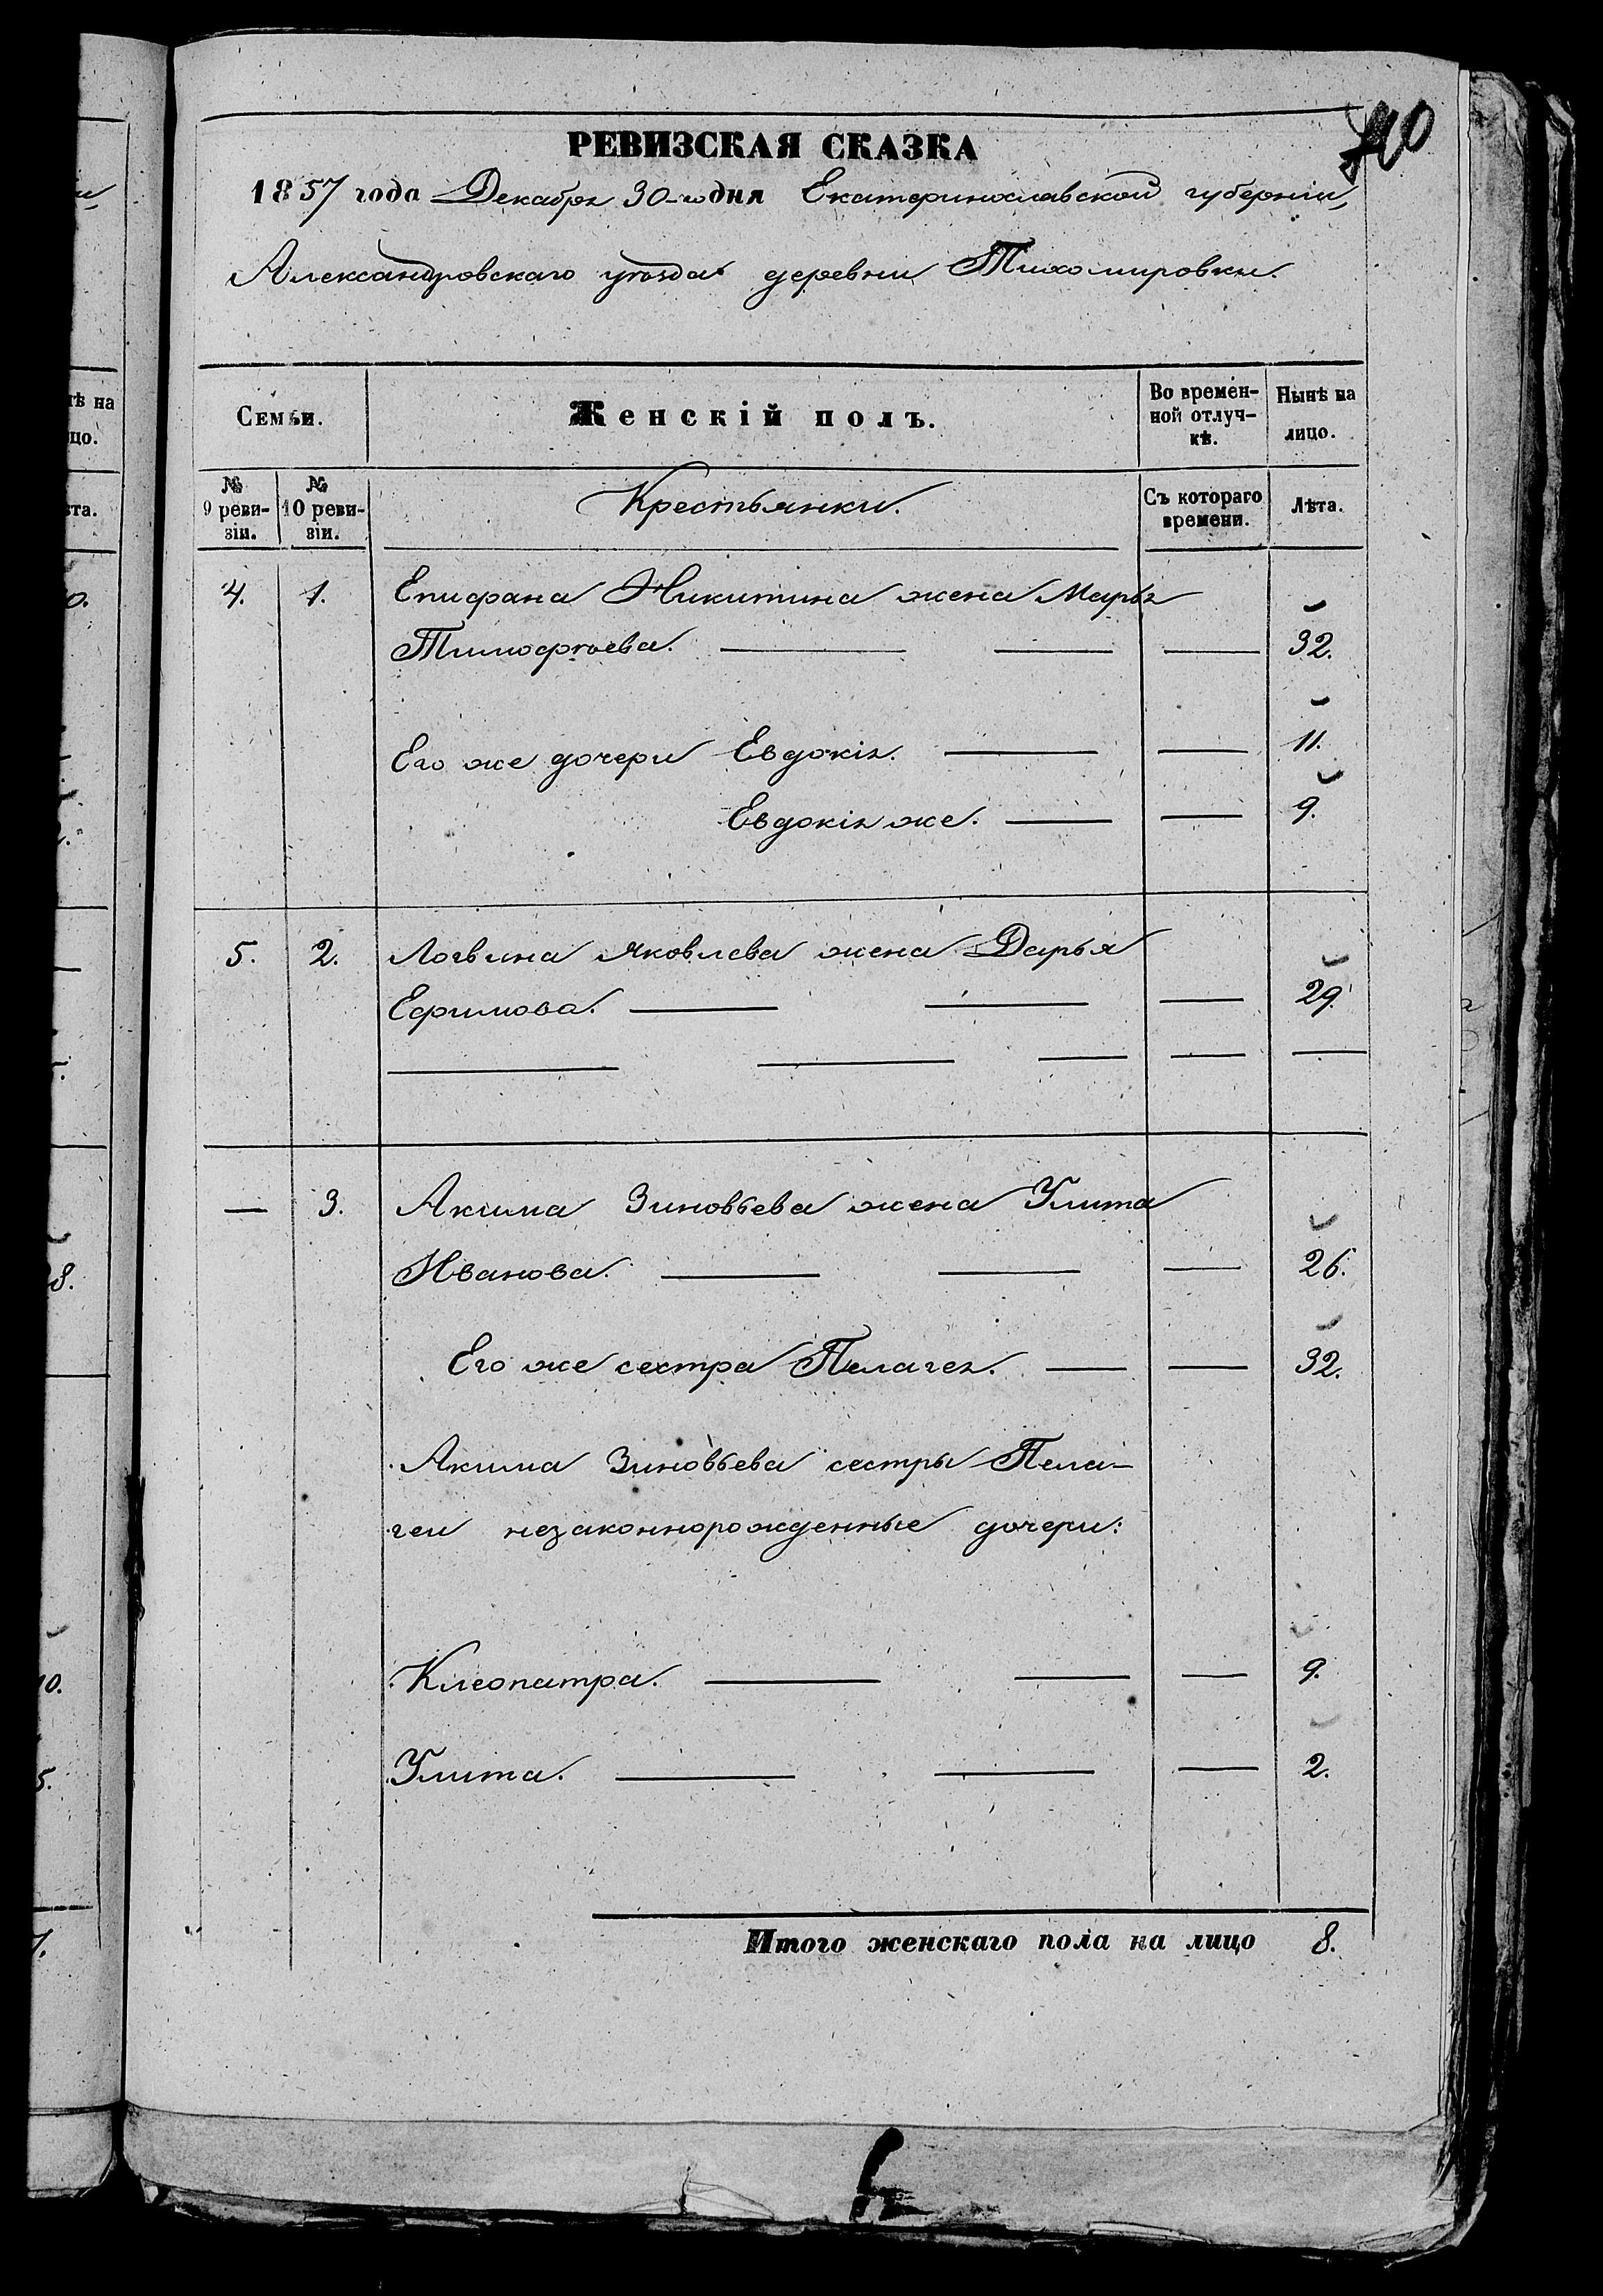 РЕВИЗСКАЯ СКАЗКА
1857 года Декабря 30-го дня Екатеринославской губерніи,
Александровскаго уѣзда деревни Тихомировки.
Семьи. Женскій полъ. Во времен-
ной отлуч-
кѣ. Нынѣ на
лицо.
№
9 реви-
зіи. №
10 реви-
зіи. Крестьянки. Съ котораго
времени. Лѣта.
4. 1. Епифана Никитина жена Марья
Тимофѣева. 32.
Его же дочери Евдокія. 11.
Евдокія же. 9.
5. 2. Логвина Яковлева жена Дарья
Ефимова. 29.
3. Акима Зиновьева жена Улита
Иванова. 26.
Его же сестра Пелагея. 32.
Акима Зиновьева сестры Пела-
геи незаконнорожденные дочери:
Клеопатра. 9.
Улита. 2.
Итого женскаго пола на лицо 8.